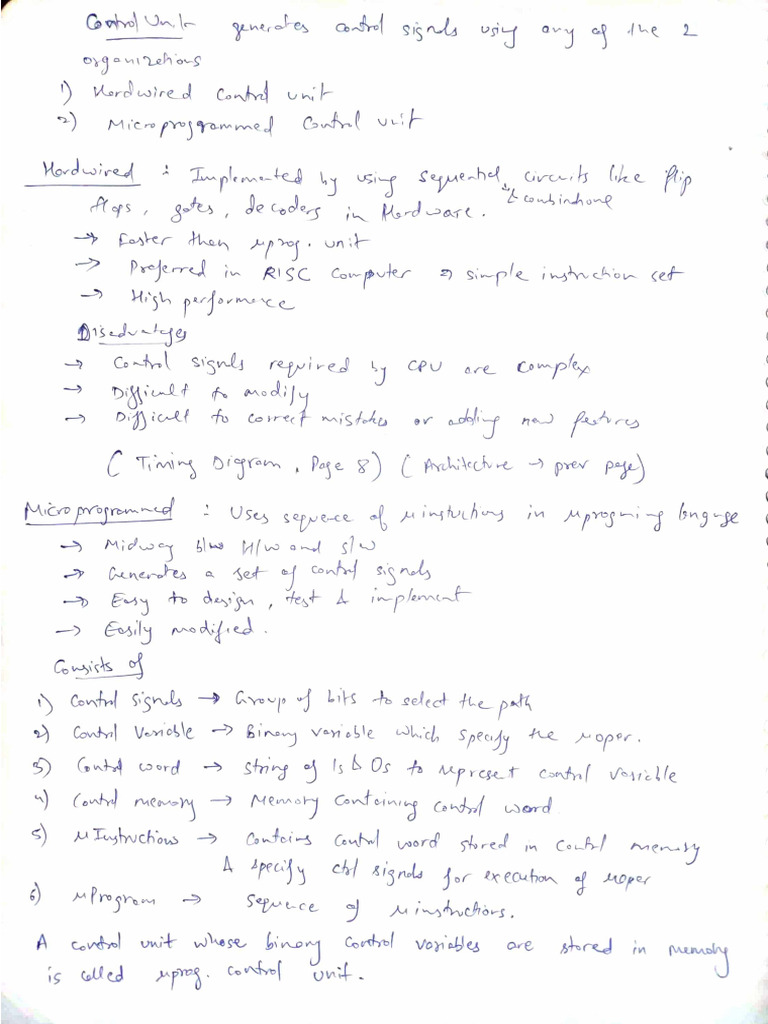 Control Unit generates control signals using any of the 2
organizations
1) Hardwired Control unit
2) Microprogrammed Control unit
Hardwired : Implemented by using sequential circuits like flip
& combinational
flops, gates, decoders in Hardware.
→ Faster than μprog. unit
→ Preferred in RISC Computer → simple instruction set
→ High performance
Disadvatages
→ Control signals required by CPU are complex
→ Difficult to modify
→ Difficult to correct mistakes or adding new features
( Timing Diagram, Page 8) ( Architecture → prev page)
Microprogrammed : Uses sequence of μinstuctions in μprograming language
→ Midway b/w H/w and S/w
→ Generates a set of control signals
→ Easy to design, test & implement
→ Easily modified.
Consists of
1) Control signals → Group of bits to select the path
2) Control Variable → Binary variable which specify the μoper.
3) Control word → string of 1s & 0s to represent control variable
4) Control memory → Memory Containing control word
5) μInstructions → Contains Control word stored in control memory
& specify ctrl signals for execution of μoper
6) μProgram → Sequence of μinstructions.
A control unit whose binary control variables are stored in memory
is called μprog. control unit.